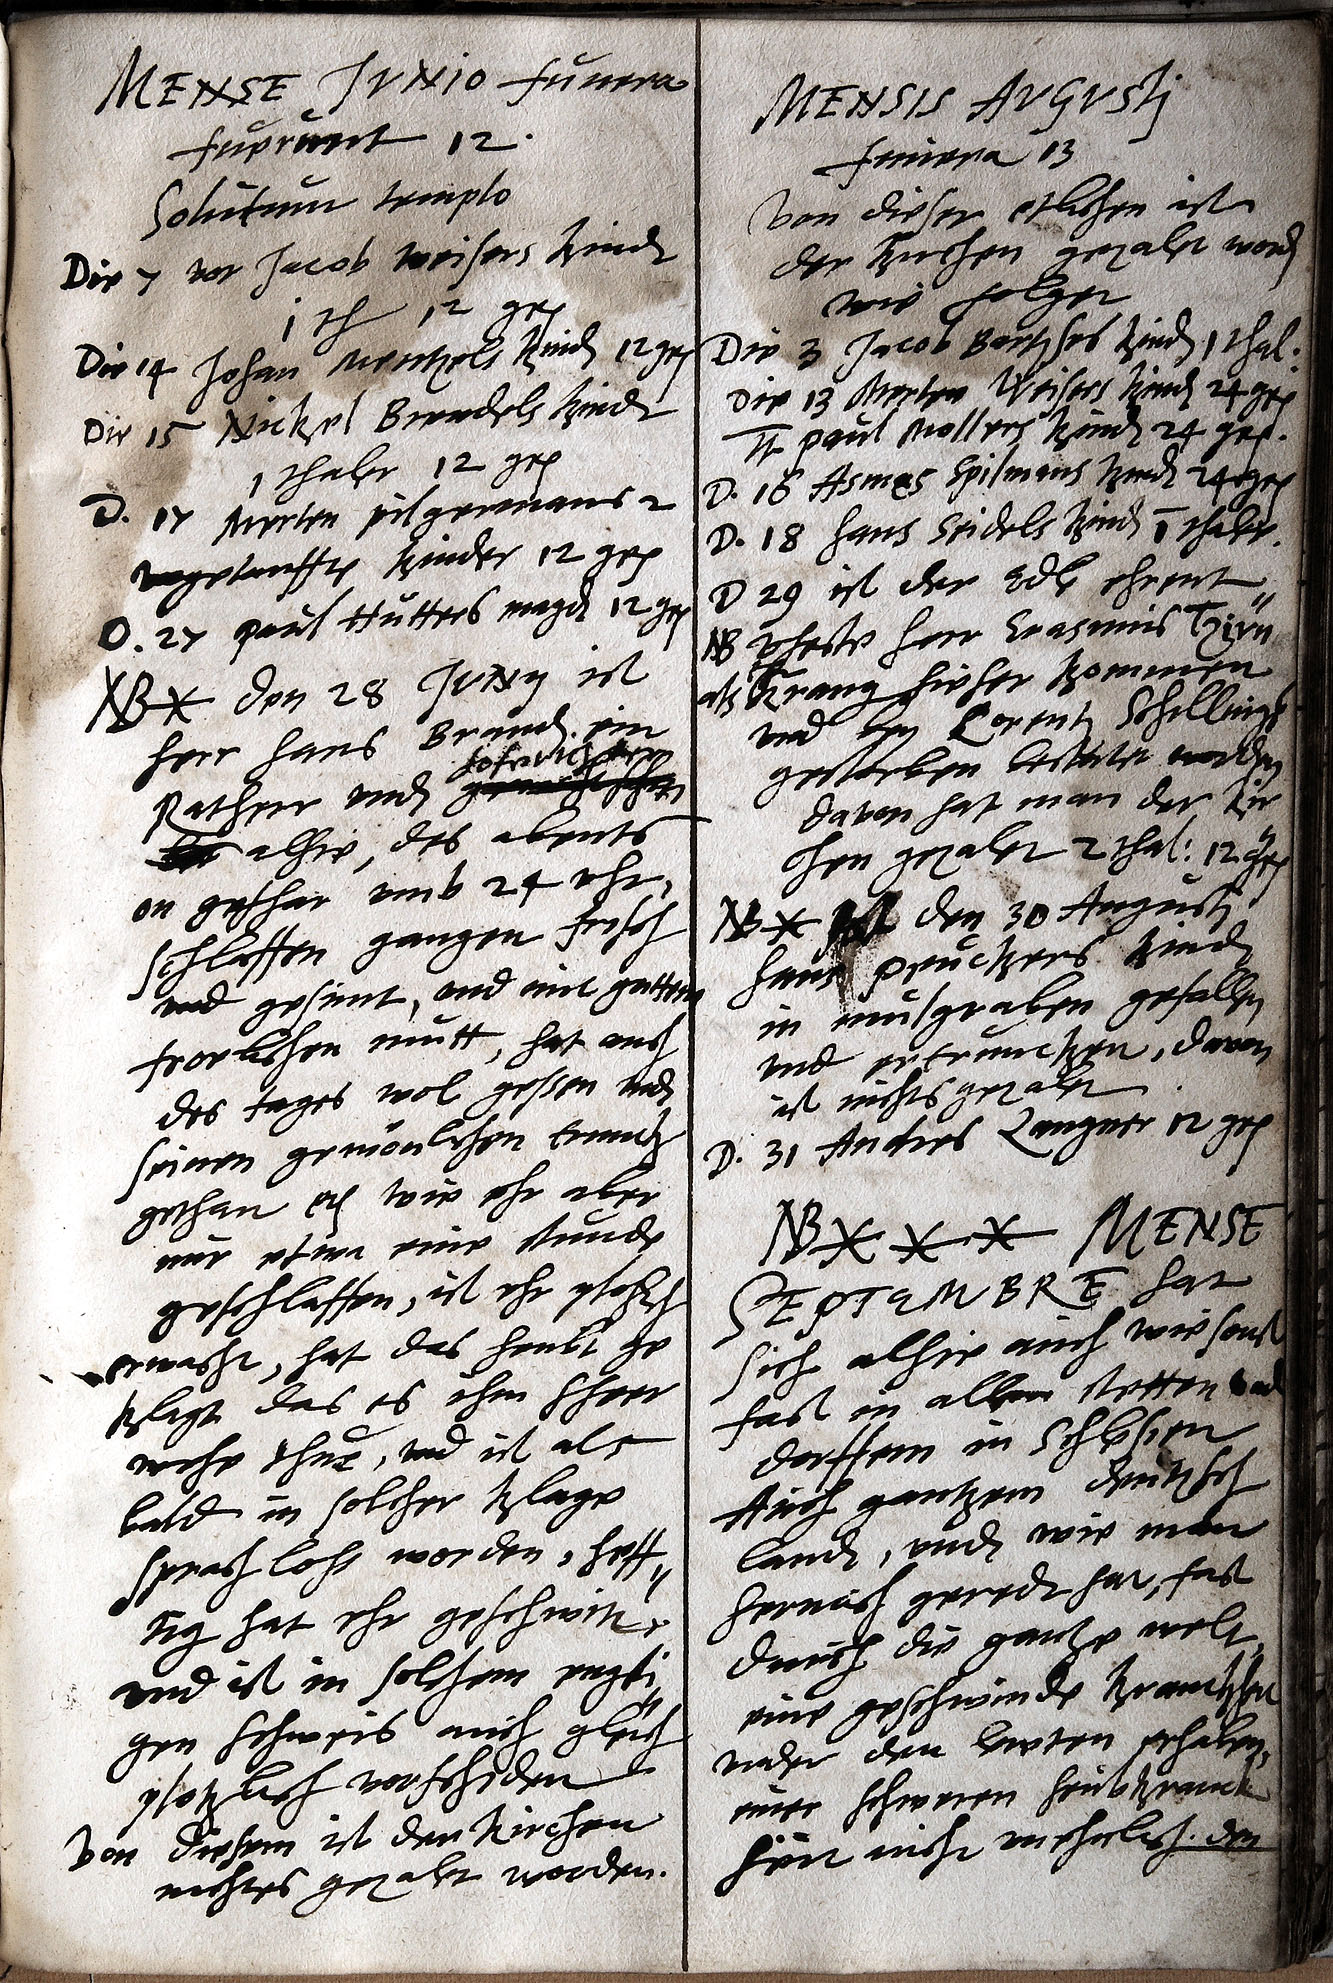 MENSE JVNIO funera
fuerunt 12.
Solutum templo
Die 7 vor Jacob Weisers kindt
1 th 12 gr
Die 14 Johan Mentzels kindt 12 gr
Die 15 Nickel Brendels kindt
1 thaler 12 gr
D. 17 Merten pilgermans 2
ungetauffte kinder 12 gr
D. 27 paul Hutters magd 12 gr
NB den 28 JVNY ist
herr hans Brandt ein
Ratherr undt
hofrichter
alhie, des abents
on gefhar umb 24 uhr,
schlaffen gangen frisch
und gesunt, und mit guttem
froelichen mutt, hat auch
des tages wol gessen undt
seinen gewönlichen trunck
gethan wie ehr aber
nur etwa eine stunde
geschlaffen, ist ehr plotzlich
erwacht, hat das heubt ge
klagt das es ihm sheer
wehe thue, und ist als
bald in solcher klage
sprachlohs worden, heff
tig hat ehr geschwitzt
und ist in solchem engsti
gen schweis auch gleich
plotzlich vorschiden
Von diesem ist der Kirchen
nichtes gezalt worden.
MENSIS AVGVSTj
funera 13
Von dieser etlichen ist
der kirchen gezalet word
wie folget
Die 3 Jacob Bartsches kindt 1 thal.
Die 13 Merten Weisers kindt 24 gr
It paul Mollers kindt 24 gr.
D. 16 Asmas Spilmans kindt 24 gr
D. 18 hans Seidels kindt 1 thaler.
D 29 ist der Edle ehrent
NB veste herr Erasmus
als krang hieher kommen
und bey Lorentz Schellings
gestorben bestatet worden
davon hat man der kir
chen gezalet 2 thal: 12 gr
NB den 30 Augusti
hans peuckers kindt
in mulgraben gefallen
und ertruncken, davon
ist nichts gezalet
D. 31 Andres Langner 12 gr
NB MENSE
SEPTEMBRE hat
sich alhie auch wie sonst
fast in allen stetten und
dorffern in Schlesien
Auch gantzem deutsch
landt, undt wie man
hernach geredt hat, fast
durch die gantze welt,
eine geschwinde kranckheit
under den leuten erhaben,
einer schweren heubtkranck
heit nicht unehnlich. den